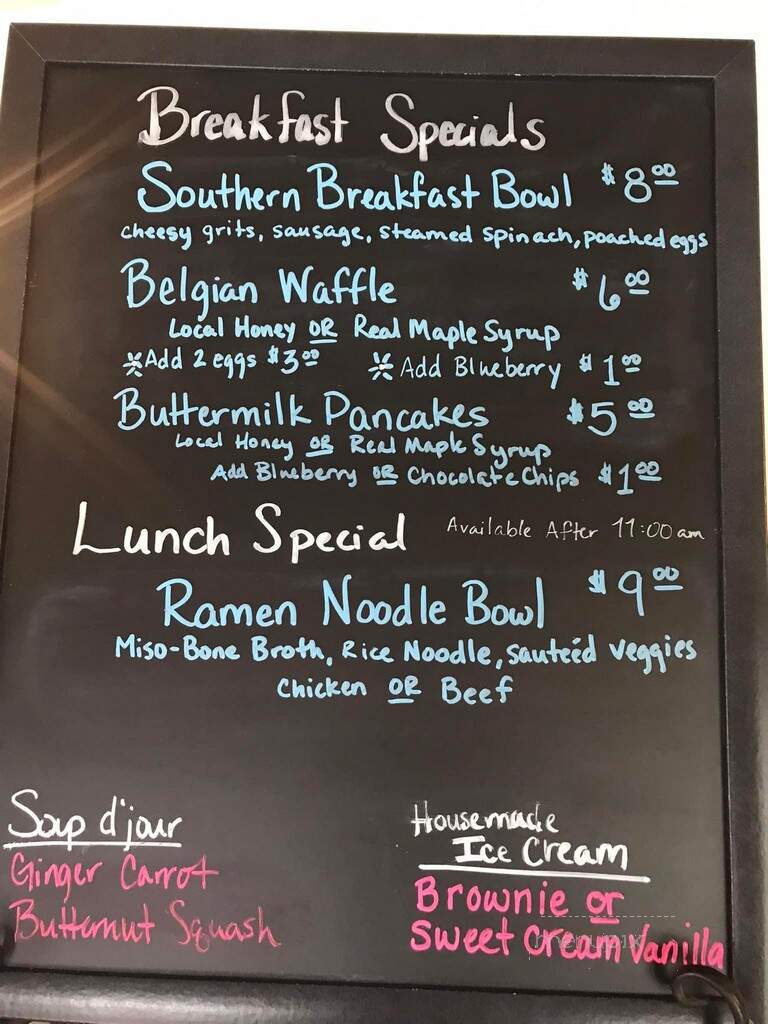 Breakfast Specials
Southern Breakfast Bowl $8.00
cheesy grits, sausage, steamed spinach, poached eggs
Belgian Waffle $6.00
Local Honey OR Real Maple Syrup
*Add 2 eggs $3.00 *Add Blueberry $1.00
Buttermilk Pancakes $5.00
Local Honey OR Real Maple Syrup
Add Blueberry OR Chocolate Chips $1.00
Lunch Special Available After 11:00am
Ramen Noodle Bowl $9.00
Miso-Bone Broth, Rice Noodle, sauteéd veggies
Chicken OR Beef
Soup d'jour
Ginger Carrot
Butternut Squash
Housemade
Ice Cream
Brownie or
Sweet Cream Vanilla
menupix